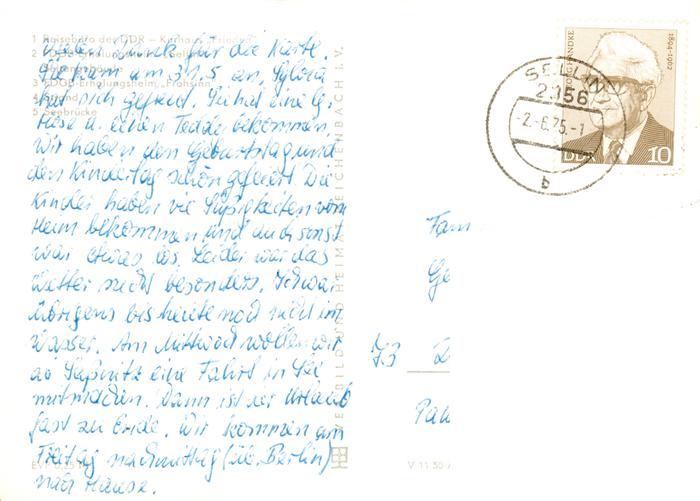 1 Reisebüro der DDR – Kurhaus „Frieden"
3 FDGB-Erholungsheim „Frohsinn"
4 Strand
5 Seebrücke
Vielen Dank für die Karte.
Sie kam am 31.5 an, Sylvia
hat sich gefreut. Sie hat eine
Hose u. einen Teddy bekommen.
Wir haben den Geburtstag und
den Kindertag schön gefeiert. Die
Kinder haben viel Süßigkeiten vom
Heim bekommen und auch sonst
war etwas los. Leider war das
Wetter nicht besonders. Ich war
übrigens bis heute noch nicht im
Wasser. Am Mittwoch wollen wir
ab Saßnitz eine Fahrt in See
mitmachen. Dann ist der Urlaub
fast zu Ende. Wir kommen am
Freitag nachmittag (üb. Berlin)
nach Hause.
VEB BILD UND HEIMAT REICHENBACH I. V.
V 11 50
SELLIN
2356
-2.-6.75.-1
b
GEORG HANDKE
1894-1962
DDR 10
Fam
Ge